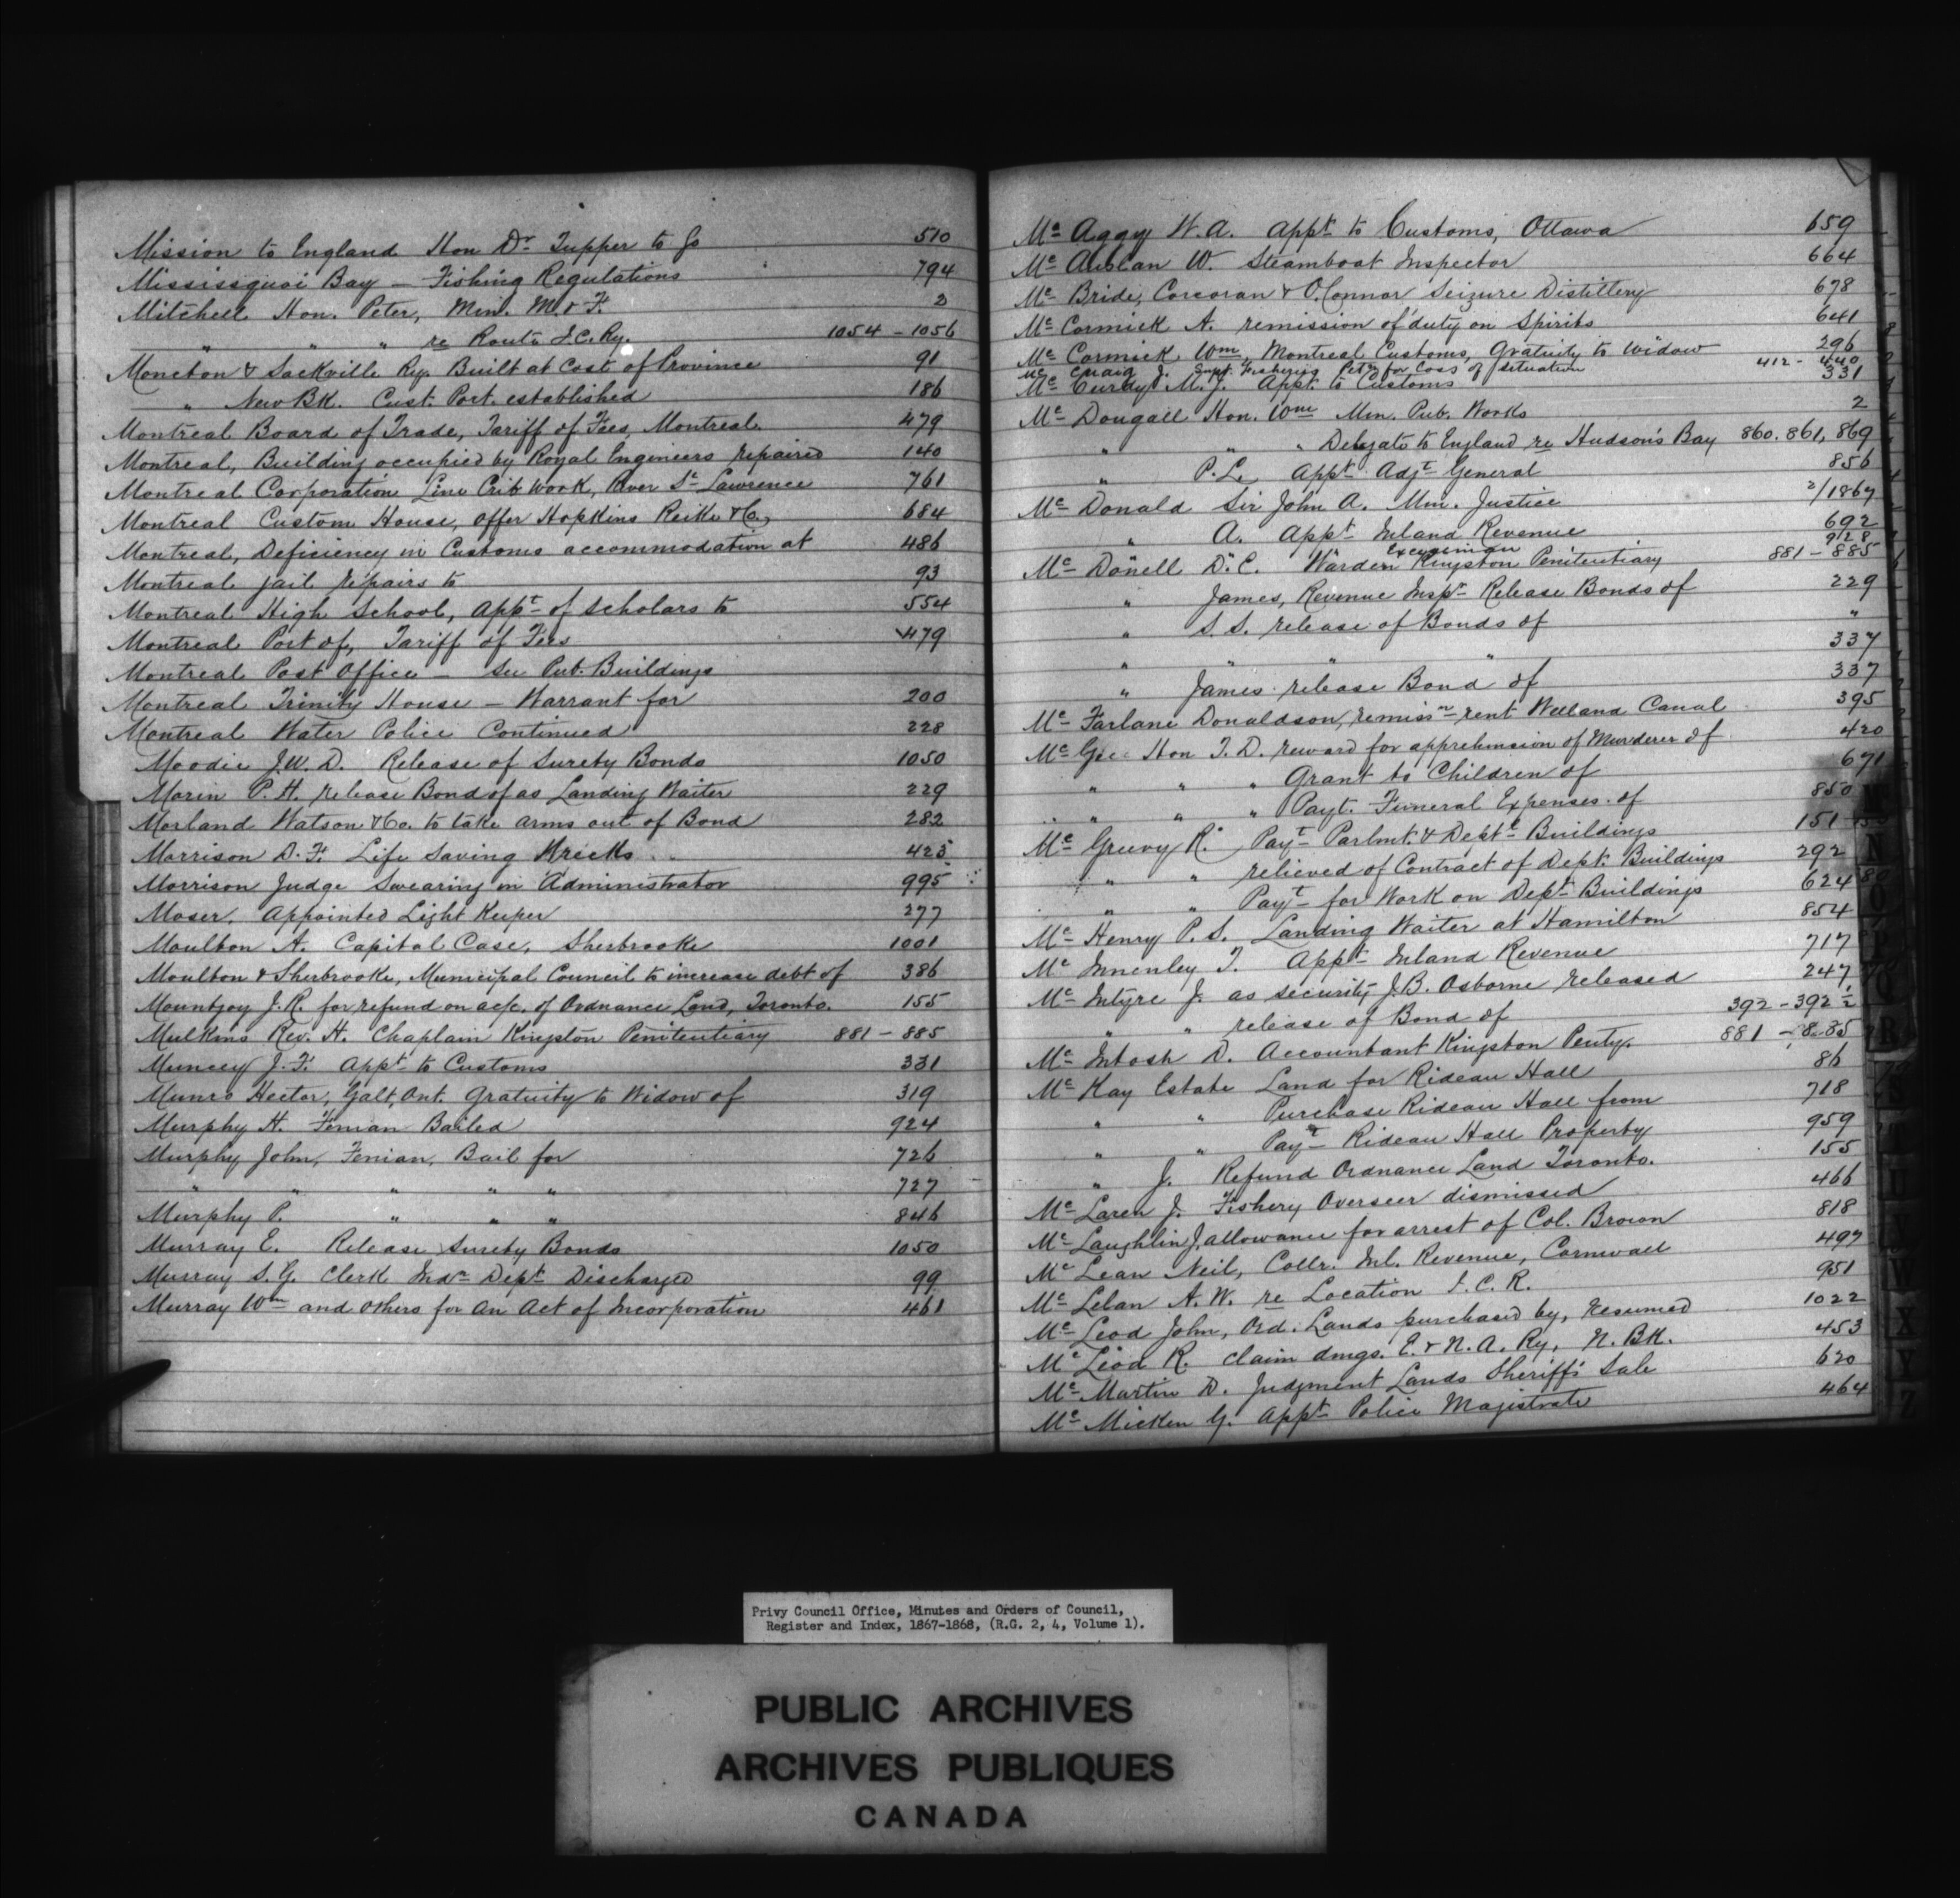 Mission to England Hon Dr Tupper to Go 510
Mississquoi Bay — Fishing Regulations 794
Mitchell Hon. Peter, Min. M. & F. 2
" " " re Route I.C. Ry. 1054 - 1056
Moncton & Sackville Ry. Built at Cost of Province 91
" New Bk. Cust. Port. established 186
Montreal Board of Trade, Tariff of Fees, Montreal. 479
Montreal, Building occupied by Royal Engineers repaired 140
Montreal Corporation Line Crib work, River St Lawrence 761
Montreal Custom House, offer Hopkins & Co, 684
Montreal, Deficiency in Customs accommodation at 486
Montreal jail repairs to 93
Montreal High School, appt of scholars to 554
Montreal Port of, Tariff of Fees 479
Montreal Post Office — See Pub. Buildings
Montreal Trinity House — Warrant for 200
Montreal Water Police Continued 228
Moodie J.W.D. Release of Surety Bonds 1050
Morin P.H. release Bond of as Landing Waiter 229
Morland Watson & Co. to take arms out of Bond 282
Morrison D.F. Life Saving Wrecks 425
Morrison Judge Swearing in Administrator 995
Moser, Appointed Light Keeper 277
Moulton A. Capital Case, Sherbrooke 1001
Moulton & Sherbrooke, Municipal Council to increase debt of 386
Mountjoy J.R. for refund on a/c. of Ordnance Land, Toronto. 155
Mulkins Rev. H. Chaplain Kingston Penitentiary 881 - 885
Muncey J.F. appt to Customs 331
Munro Hector, Galt, Ont. Gratuity to Widow of 319
Murphy H. Fenian Bailed 924
Murphy John, Fenian, Bail for 726
" " " " " 727
Murphy P. " " " 846
Murray E. Release Surety Bonds 1050
Murray S.G. Clerk Dept Discharged 99
Murray Wm and others for an Act of Incorporation 461
Mc Aggy W.A. appt to Customs, Ottawa 659
Mc Auslan W. Steamboat Inspector 664
Mc Bride, Corcoran & O'Connor Seizure Distillery 678
Mc Cormick A. remission of duty on Spirits 641
Mc Cormick Wm, Montreal Customs, Gratuity to Widow 296
Mc Cuaig J. Supt. Fisheries Petn for Loss of situation 412 - 440
Mc Curdy M.J. Appt. to Customs 331
Mc Dougall Hon. Wm Min. Pub. Works 2
" " " Delegate to England re Hudson's Bay 860. 861, 869
" P.L. appt Adjt General 856
Mc Donald Sir John A. Min. Justice 2/1867
" A. Appt Inland Revenue 692
" " Exciseman 928
Mc Donell D.C. Warden Kingston Penitentiary 881 - 885
" James, Revenue Inspr Release Bonds of 229
" S.S. release of Bonds of "
" " " " 337
" James release Bond of 337
Mc Farlane Donaldson, remissn rent Welland Canal 395
Mc Gee Hon T.D. reward for apprehension of Murderer of 420
" " " Grant to Children of 671
" " " Payt. Funeral Expenses of 850
Mc Greevy R. Payt Parlmt. & Deptl Buildings 151
" " relieved of Contract of Dept. Buildings 292
" " Payt for Work on Deptl Buildings 624
Mc Henry P.S. Landing Waiter at Hamilton 854
Mc Innenley T. Appt Inland Revenue 717
Mc Intyre J. as security J.B. Osborne released 247
" " release of Bond of 392 - 392 1/2
Mc Intosh D. Accountant Kingston Penty. 881 - 885
Mc Kay Estate Land for Rideau Hall 86
" " Purchase Rideau Hall from 718
" " Payt Rideau Hall Property 959
" J. Refund Ordnance Land Toronto. 155
Mc Laren J. Fishery Overseer dismissed 466
Mc Laughlin J, allowance for arrest of Col. Brown 818
Mc Lean Neil, Collr. Inl. Revenue, Cornwall 497
Mc Lelan A.W. re Location I.C.R. 951
Mc Leod John, Ord. Lands purchased by, resumed 1022
Mc Leod R. claim dmgs. E. & N.A. Ry, N.BK. 453
Mc Martin D. Judgment Lands Sheriff's Sale 620
Mc Micken G. appt Police Magistrate 464
N
O
R
U
W
X
Y
Privy Council Office, Minutes and Orders of Council,
Register and Index, 1867-1868, (R.G. 2, 4, Volume 1).
PUBLIC ARCHIVES
ARCHIVES PUBLIQUES
CANADA